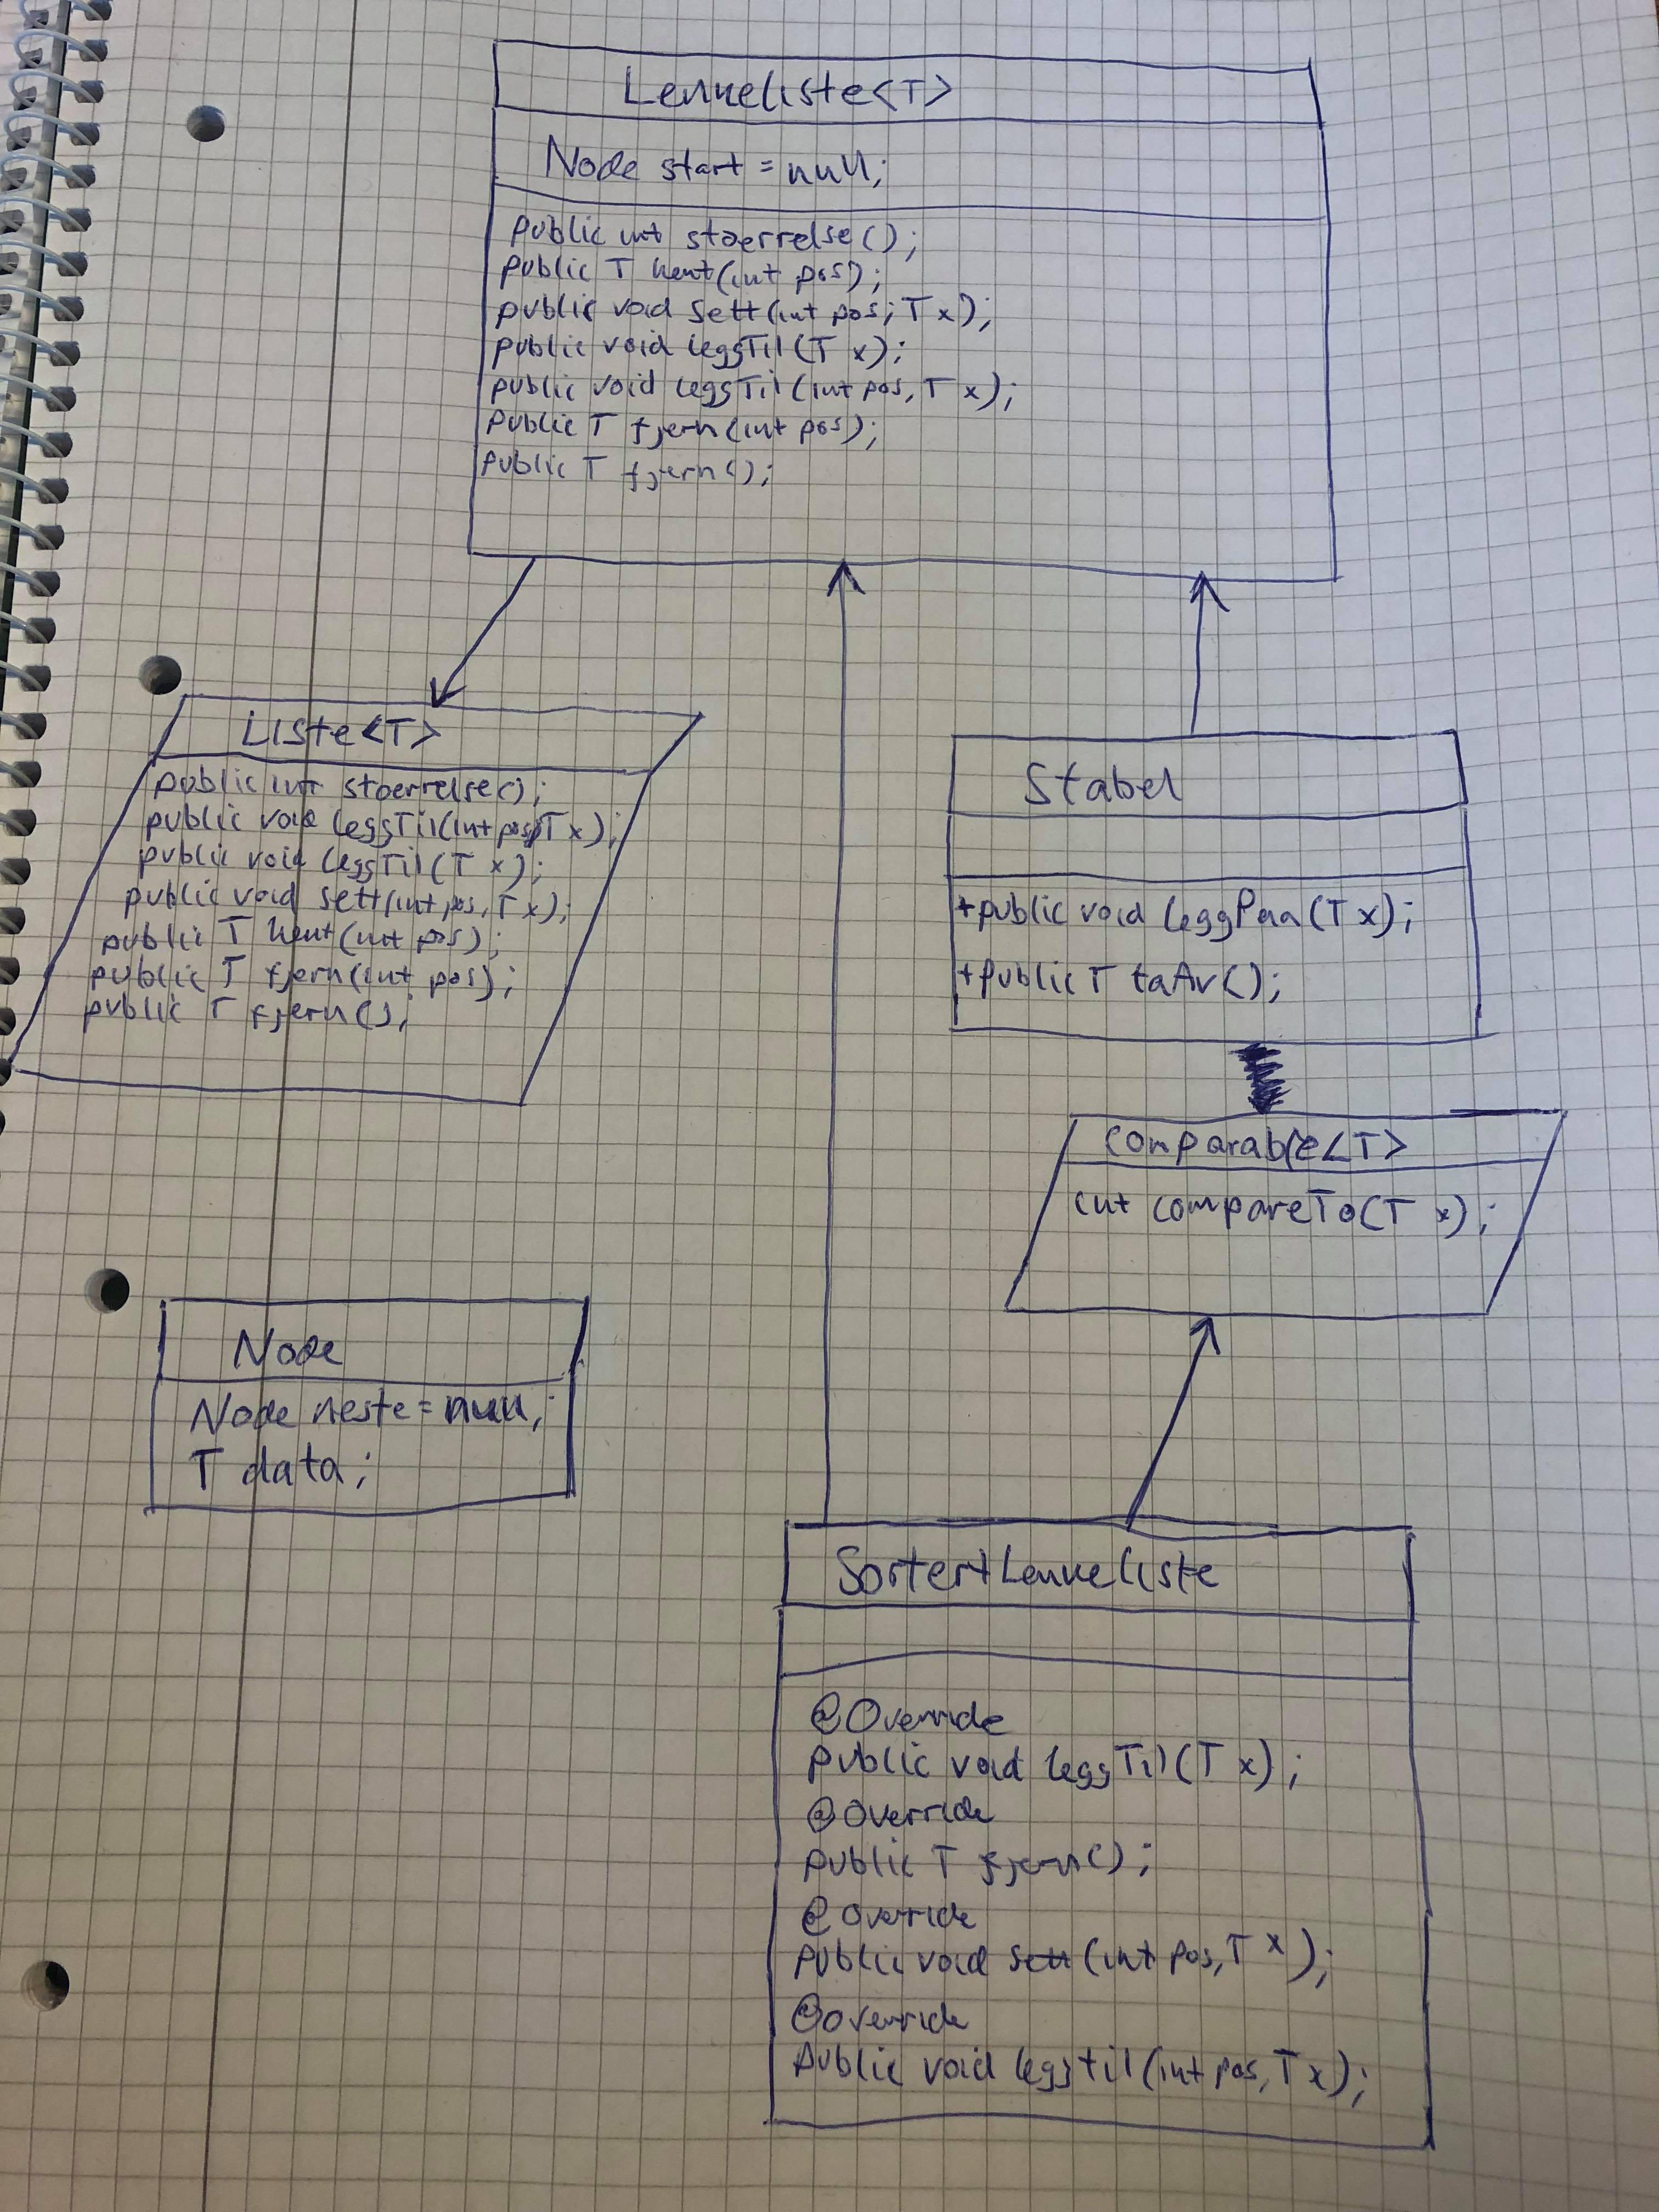 Lenkeliste<T>
Node start = null;
public int stoerrelse();
public T hent(int pos);
public void sett(int pos, T x);
public void leggTil(T x);
public void leggTil(int pos, T x);
public T fjern(int pos);
public T fjern();
Liste<T>
public int stoerrelse();
public void leggTil(int pos, T x);
public void leggTil(T x);
public void sett(int pos, T x);
public T hent(int pos);
public T fjern(int pos);
public T fjern();
Stabel
+public void leggPaa(T x);
+public T taAv();
Comparable<T>
int compareTo(T x);
Node
Node neste = null;
T data;
SortertLenkeliste
@Override
public void leggTil(T x);
@Override
public T fjern();
@Override
public void sett(int pos, T x);
@Override
public void leggtil(int pos, T x);